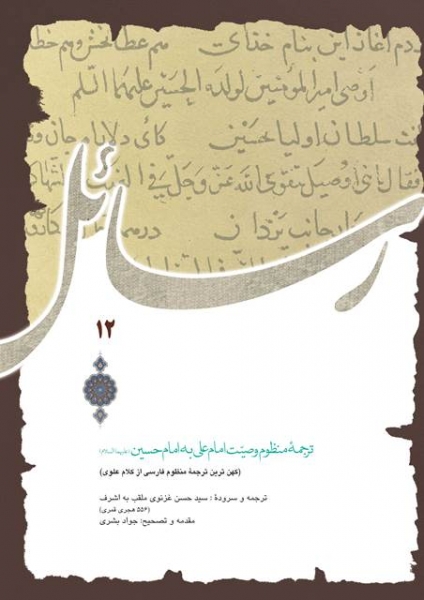 ردم آغاز این بنام خدای هم عطابخش و هم خطا
اوصی امیر المؤمنین لولده الحسین علیهما السلم
سلطان اولیا بحسین کای دلارام جان و
فقال یا بنی اوصیک بتقوی الله عز وجل فی الغیب
جانب یزدان در همه
رسائل
۱۲
ترجمهٔ منظوم وصیّت امام علی به امام حسین (علیهما السلام)
(کهن ترین ترجمهٔ منظوم فارسی از کلام علوی)
ترجمه و سرودهٔ : سید حسن غزنوی ملقب به اشرف
(۵۵۶ هجری قمری)
مقدمه و تصحیح: جواد بشری